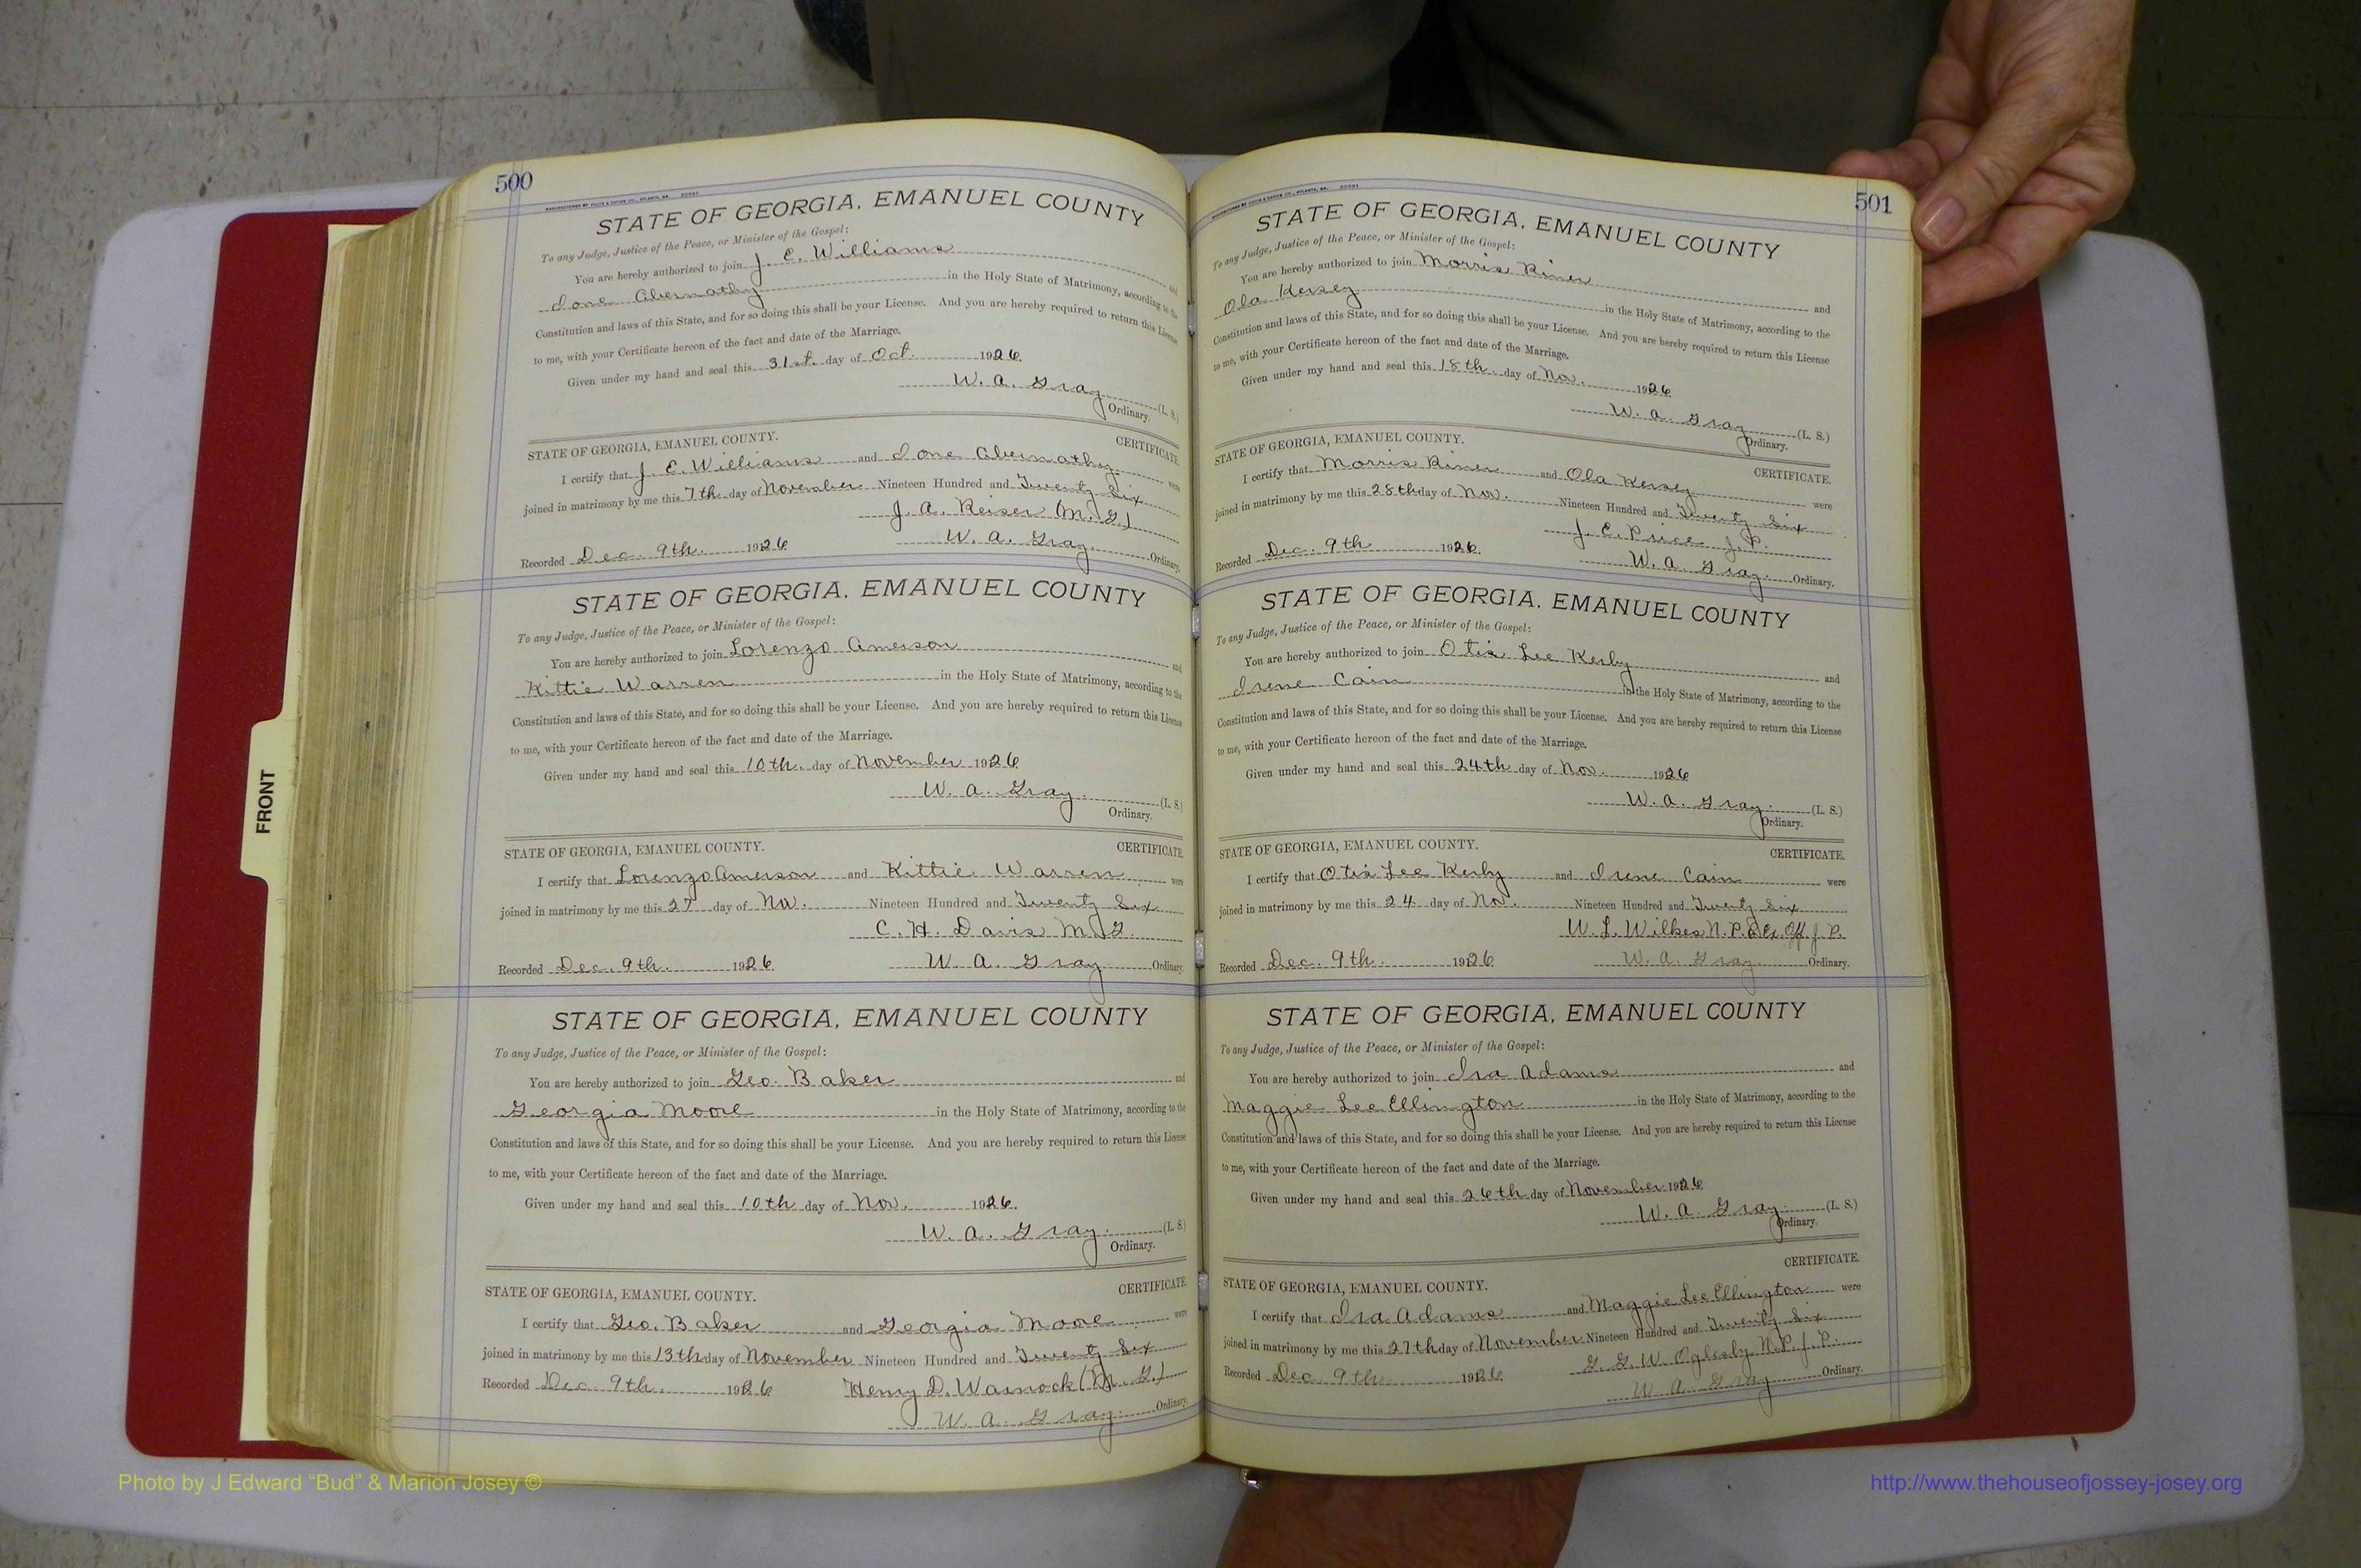 500
STATE OF GEORGIA, EMANUEL COUNTY
To any Judge, Justice of the Peace, or Minister of the Gospel:
You are hereby authorized to join J. E. Williams and
Ione Abernathy in the Holy State of Matrimony, according to the
Constitution and laws of this State, and for so doing this shall be your License. And you are hereby required to return this License
to me, with your Certificate hereon of the fact and date of the Marriage.
Given under my hand and seal this 31st. day of Oct. 1926.
W. A. Gray (L. S.)
Ordinary.
STATE OF GEORGIA, EMANUEL COUNTY. CERTIFICATE
I certify that J. E. Williams and Ione Abernathy were
joined in matrimony by me this 7th day of November Nineteen Hundred and Twenty Six
J. A. Reiser (M. G.)
Recorded Dec. 9th. 1926 W. A. Gray. Ordinary.
STATE OF GEORGIA, EMANUEL COUNTY
To any Judge, Justice of the Peace, or Minister of the Gospel:
You are hereby authorized to join Lorenzo Amerson and
Kittie Warren in the Holy State of Matrimony, according to the
Constitution and laws of this State, and for so doing this shall be your License. And you are hereby required to return this License
to me, with your Certificate hereon of the fact and date of the Marriage.
Given under my hand and seal this 10th. day of November 1926
W. A. Gray. (L. S.)
Ordinary.
STATE OF GEORGIA, EMANUEL COUNTY. CERTIFICATE.
I certify that Lorenzo Amerson and Kittie Warren were
joined in matrimony by me this 27 day of Nov. Nineteen Hundred and Twenty Six
C. H. Davis M. G.
Recorded Dec. 9th. 1926 W. A. Gray. Ordinary.
STATE OF GEORGIA, EMANUEL COUNTY
To any Judge, Justice of the Peace, or Minister of the Gospel:
You are hereby authorized to join Geo. Baker and
Georgia Moore in the Holy State of Matrimony, according to the
Constitution and laws of this State, and for so doing this shall be your License. And you are hereby required to return this License
to me, with your Certificate hereon of the fact and date of the Marriage.
Given under my hand and seal this 10th day of Nov. 1926.
W. A. Gray. (L. S.)
Ordinary.
CERTIFICATE
STATE OF GEORGIA, EMANUEL COUNTY.
I certify that Geo. Baker and Georgia Moore were
joined in matrimony by me this 13th day of November Nineteen Hundred and Twenty Six
Recorded Dec. 9th. 1926 Henry D. Warnock (M. G.)
W. A. Gray. Ordinary.
501
STATE OF GEORGIA, EMANUEL COUNTY
To any Judge, Justice of the Peace, or Minister of the Gospel:
You are hereby authorized to join Morris Riner and
Ola Kersey in the Holy State of Matrimony, according to the
Constitution and laws of this State, and for so doing this shall be your License. And you are hereby required to return this License
to me, with your Certificate hereon of the fact and date of the Marriage.
Given under my hand and seal this 18th. day of Nov. 1926
W. A. Gray (L. S.)
Ordinary.
STATE OF GEORGIA, EMANUEL COUNTY. CERTIFICATE.
I certify that Morris Riner and Ola Kersey were
joined in matrimony by me this 28th day of Nov. Nineteen Hundred and Twenty Six
J. E. Price J. P.
Recorded Dec. 9th 1926. W. A. Gray. Ordinary.
STATE OF GEORGIA, EMANUEL COUNTY
To any Judge, Justice of the Peace, or Minister of the Gospel:
You are hereby authorized to join Otis Lee Kerby and
Irene Cain in the Holy State of Matrimony, according to the
Constitution and laws of this State, and for so doing this shall be your License. And you are hereby required to return this License
to me, with your Certificate hereon of the fact and date of the Marriage.
Given under my hand and seal this 24th day of Nov. 1926
W. A. Gray. (L. S.)
Ordinary.
STATE OF GEORGIA, EMANUEL COUNTY. CERTIFICATE.
I certify that Otis Lee Kerby and Irene Cain were
joined in matrimony by me this 24 day of Nov. Nineteen Hundred and Twenty Six
W. L. Wilkes N. P. & Ex. Off. J. P.
Recorded Dec. 9th. 1926 W. A. Gray Ordinary.
STATE OF GEORGIA, EMANUEL COUNTY
To any Judge, Justice of the Peace, or Minister of the Gospel:
You are hereby authorized to join Ira Adams and
Maggie Lee Ellington in the Holy State of Matrimony, according to the
Constitution and laws of this State, and for so doing this shall be your License. And you are hereby required to return this License
to me, with your Certificate hereon of the fact and date of the Marriage.
Given under my hand and seal this 26th day of November 1926
W. A. Gray. (L. S.)
Ordinary.
CERTIFICATE.
STATE OF GEORGIA, EMANUEL COUNTY.
I certify that Ira Adams and Maggie Lee Ellington were
joined in matrimony by me this 27th day of November Nineteen Hundred and Twenty Six
G. G. W. Oglesby N. P. J. P.
Recorded Dec. 9th 1926. W. A. Gray Ordinary.
FRONT
Photo by J Edward “Bud” & Marion Josey ©
http://www.thehouseofjossey-josey.org